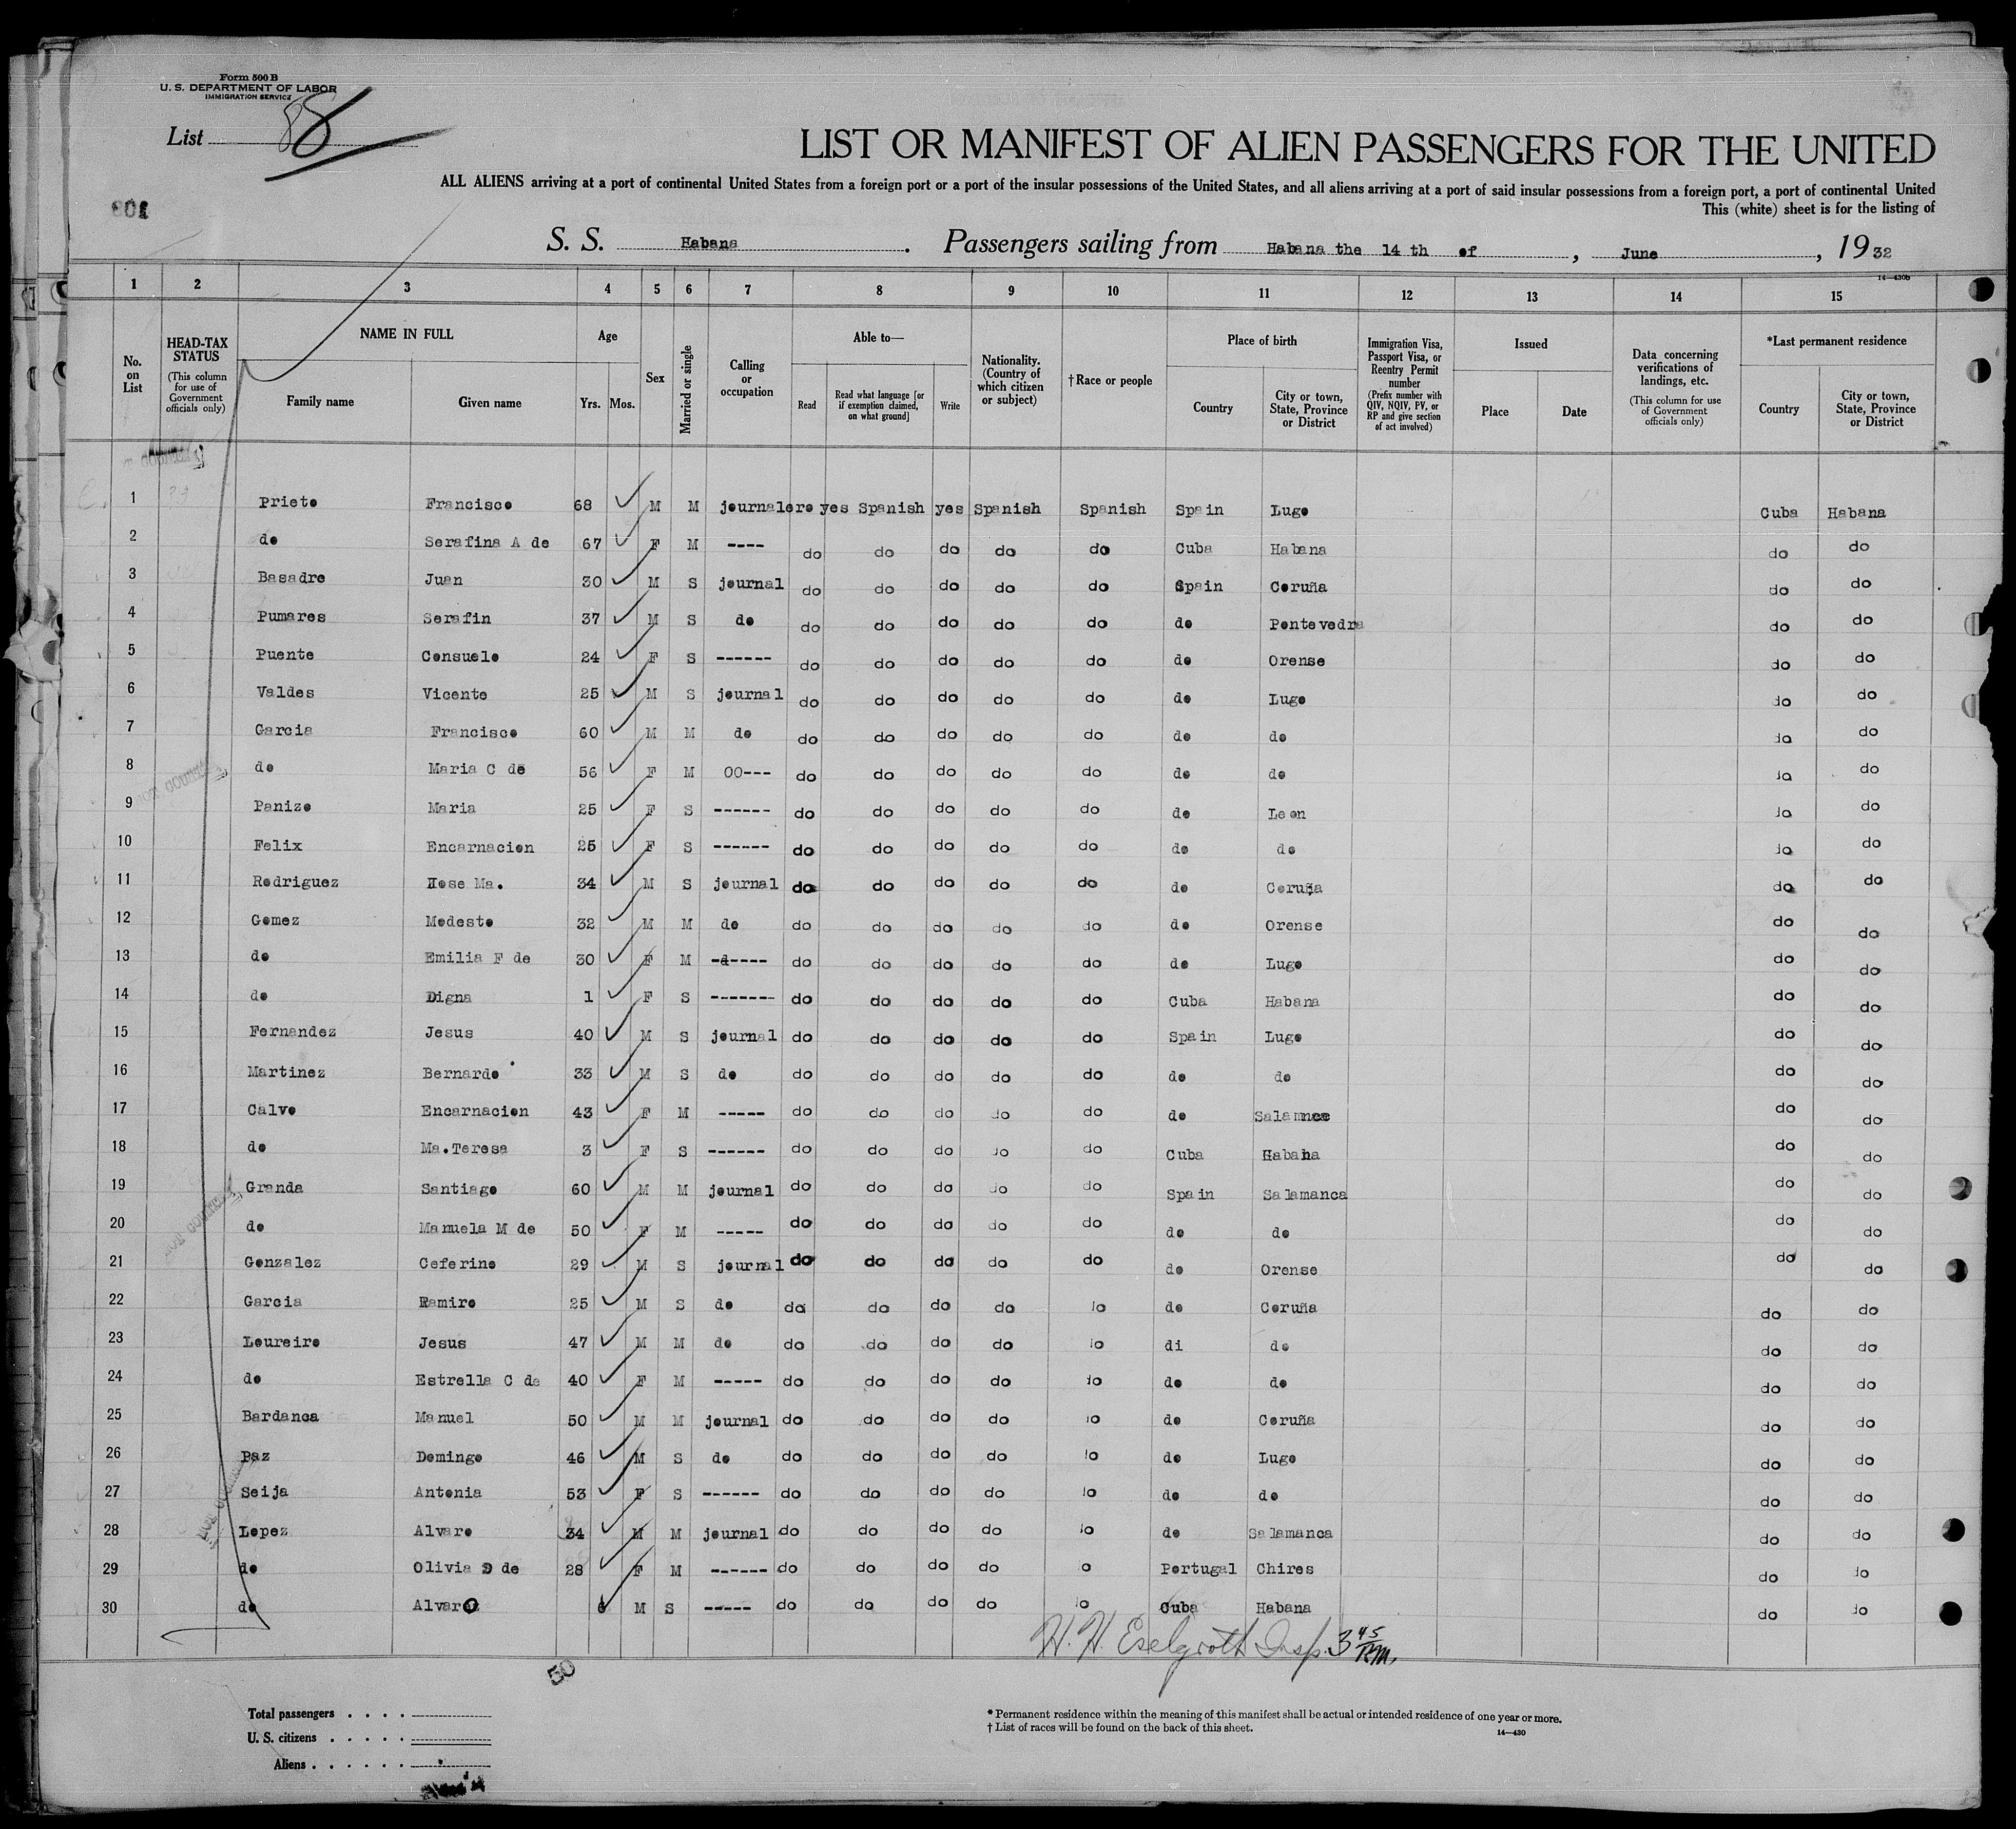 Form 500 B
U. S. DEPARTMENT OF LABOR
IMMIGRATION SERVICE
List 88
LIST OR MANIFEST OF ALIEN PASSENGERS FOR THE UNITED
ALL ALIENS arriving at a port of continental United States from a foreign port or a port of the insular possessions of the United States, and all aliens arriving at a port of said insular possessions from a foreign port, a port of continental United
This (white) sheet is for the listing of
S. S. Habana. Passengers sailing from Habana the 14 th of, June, 1932
14—430b
1 2 3 4 5 6 7 8 9 10 11 12 13 14 15
No. on List
HEAD-TAX STATUS (This column for use of Government officials only)
NAME IN FULL Family name Given name
Age Yrs. Mos.
Sex
Married or single
Calling or occupation
Able to— Read Read what language [or if exemption claimed, on what ground] Write
Nationality. (Country of which citizen or subject)
†Race or people
Place of birth Country City or town, State, Province or District
Immigration Visa, Passport Visa, or Reentry Permit number (Prefix number with QIV, NQIV, PV, or RP and give section of act involved)
Issued Place Date
Data concerning verifications of landings, etc. (This column for use of Government officials only)
*Last permanent residence Country City or town, State, Province or District
1 Prieto Francisco 68 M M journalero yes Spanish yes Spanish Spanish Spain Lugo Cuba Habana
2 do Serafina A de 67 F M ---- do do do do do Cuba Habana do do
3 Basadre Juan 30 M S journal do do do do do Spain Coruña do do
4 Pumares Serafin 37 M S do do do do do do do Pontevedra do do
5 Puente Consuelo 24 F S ------ do do do do do do Orense do do
6 Valdes Vicente 25 M S journal do do do do do do Lugo do do
7 Garcia Francisco 60 M M do do do do do do do do do do
8 do Maria C de 56 F M OO--- do do do do do do do do do
9 Panizo Maria 25 F S ------ do do do do do do Leon do do
10 Felix Encarnacion 25 F S ------ do do do do do do do do do
11 Rodriguez Jose Ma. 34 M S journal do do do do do do Coruña do do
12 Gomez Modesto 32 M M do do do do do do do Orense do do
13 do Emilia F de 30 F M -d---- do do do do do do Lugo do do
14 do Digna 1 F S ------- do do do do do Cuba Habana do do
15 Fernandez Jesus 40 M S journal do do do do do Spain Lugo do do
16 Martinez Bernardo 33 M S do do do do do do do do do do
17 Calvo Encarnacion 43 F M ----- do do do do do do do do
18 do Ma.Teresa 3 F S ------ do do do do do Cuba Habana do do
19 Granda Santiago 60 M M journal do do do do do Spain Salamanca do do
20 do Manuela M de 50 F M ----- do do do do do do do do do
21 Gonzalez Ceferino 29 M S journal do do do do do do Orense do do
22 Garcia Ramiro 25 M S do do do do do do do Coruña do do
23 Loureiro Jesus 47 M M do do do do do do di do do do
24 do Estrella C de 40 F M ----- do do do do do do do do do
25 Bardanca Manuel 50 M M journal do do do do do do Coruña do do
26 Paz Domingo 46 M S do do do do do do do Lugo do do
27 Seija Antonia 53 F S ------ do do do do do do do do do
28 Lopez Alvaro 34 M M journal do do do do do do Salamanca do do
29 do Olivia D de 28 F M ------ do do do do do Portugal Chires do do
30 do Alvaro 6 M S ----- do do do do do Cuba Habana do do
H. H. Eselgroth Insp. 3 45 P.M.
50
Total passengers . . . .
U. S. citizens . . . . .
Aliens . . . . . .
* Permanent residence within the meaning of this manifest shall be actual or intended residence of one year or more.
† List of races will be found on the back of this sheet.
14—430